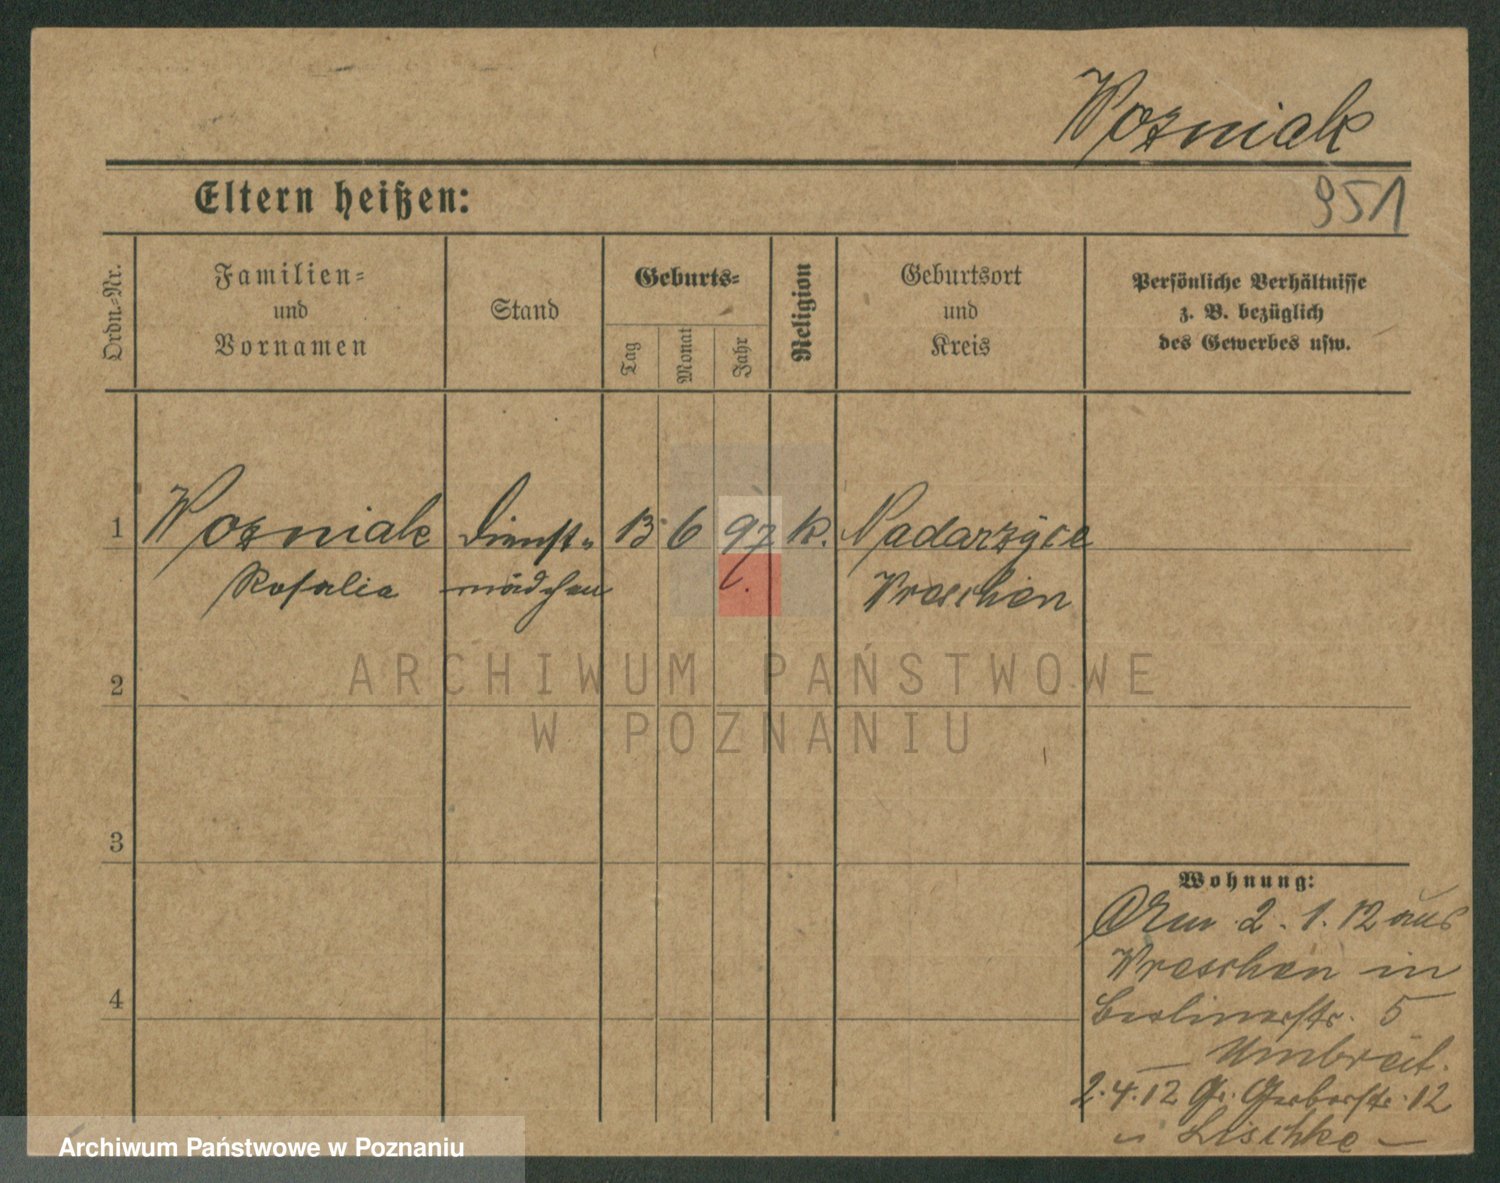 Wozniak
Eltern heißen:
951
Ordn.-Nr.
Familien-
und
Vornamen
Stand
Geburts-
Tag
Monat
Jahr
Religion
Geburtsort
und
Kreis
Persönliche Verhältnisse
z. B. bezüglich
des Gewerbes usw.
1 Wozniak Dienst- 13 6 97 k. Nadarzyce
Rosalie mädchen Wreschen
ARCHIWUM PAŃSTWOWE
W POZNANIU
2
3
4
Wohnung:
2.1.12 aus
Wreschen in
Berlinerstr. 5
Umbreit.
2.4.12 Gr. Gerberstr. 12
Lischke
Archiwum Państwowe w Poznaniu